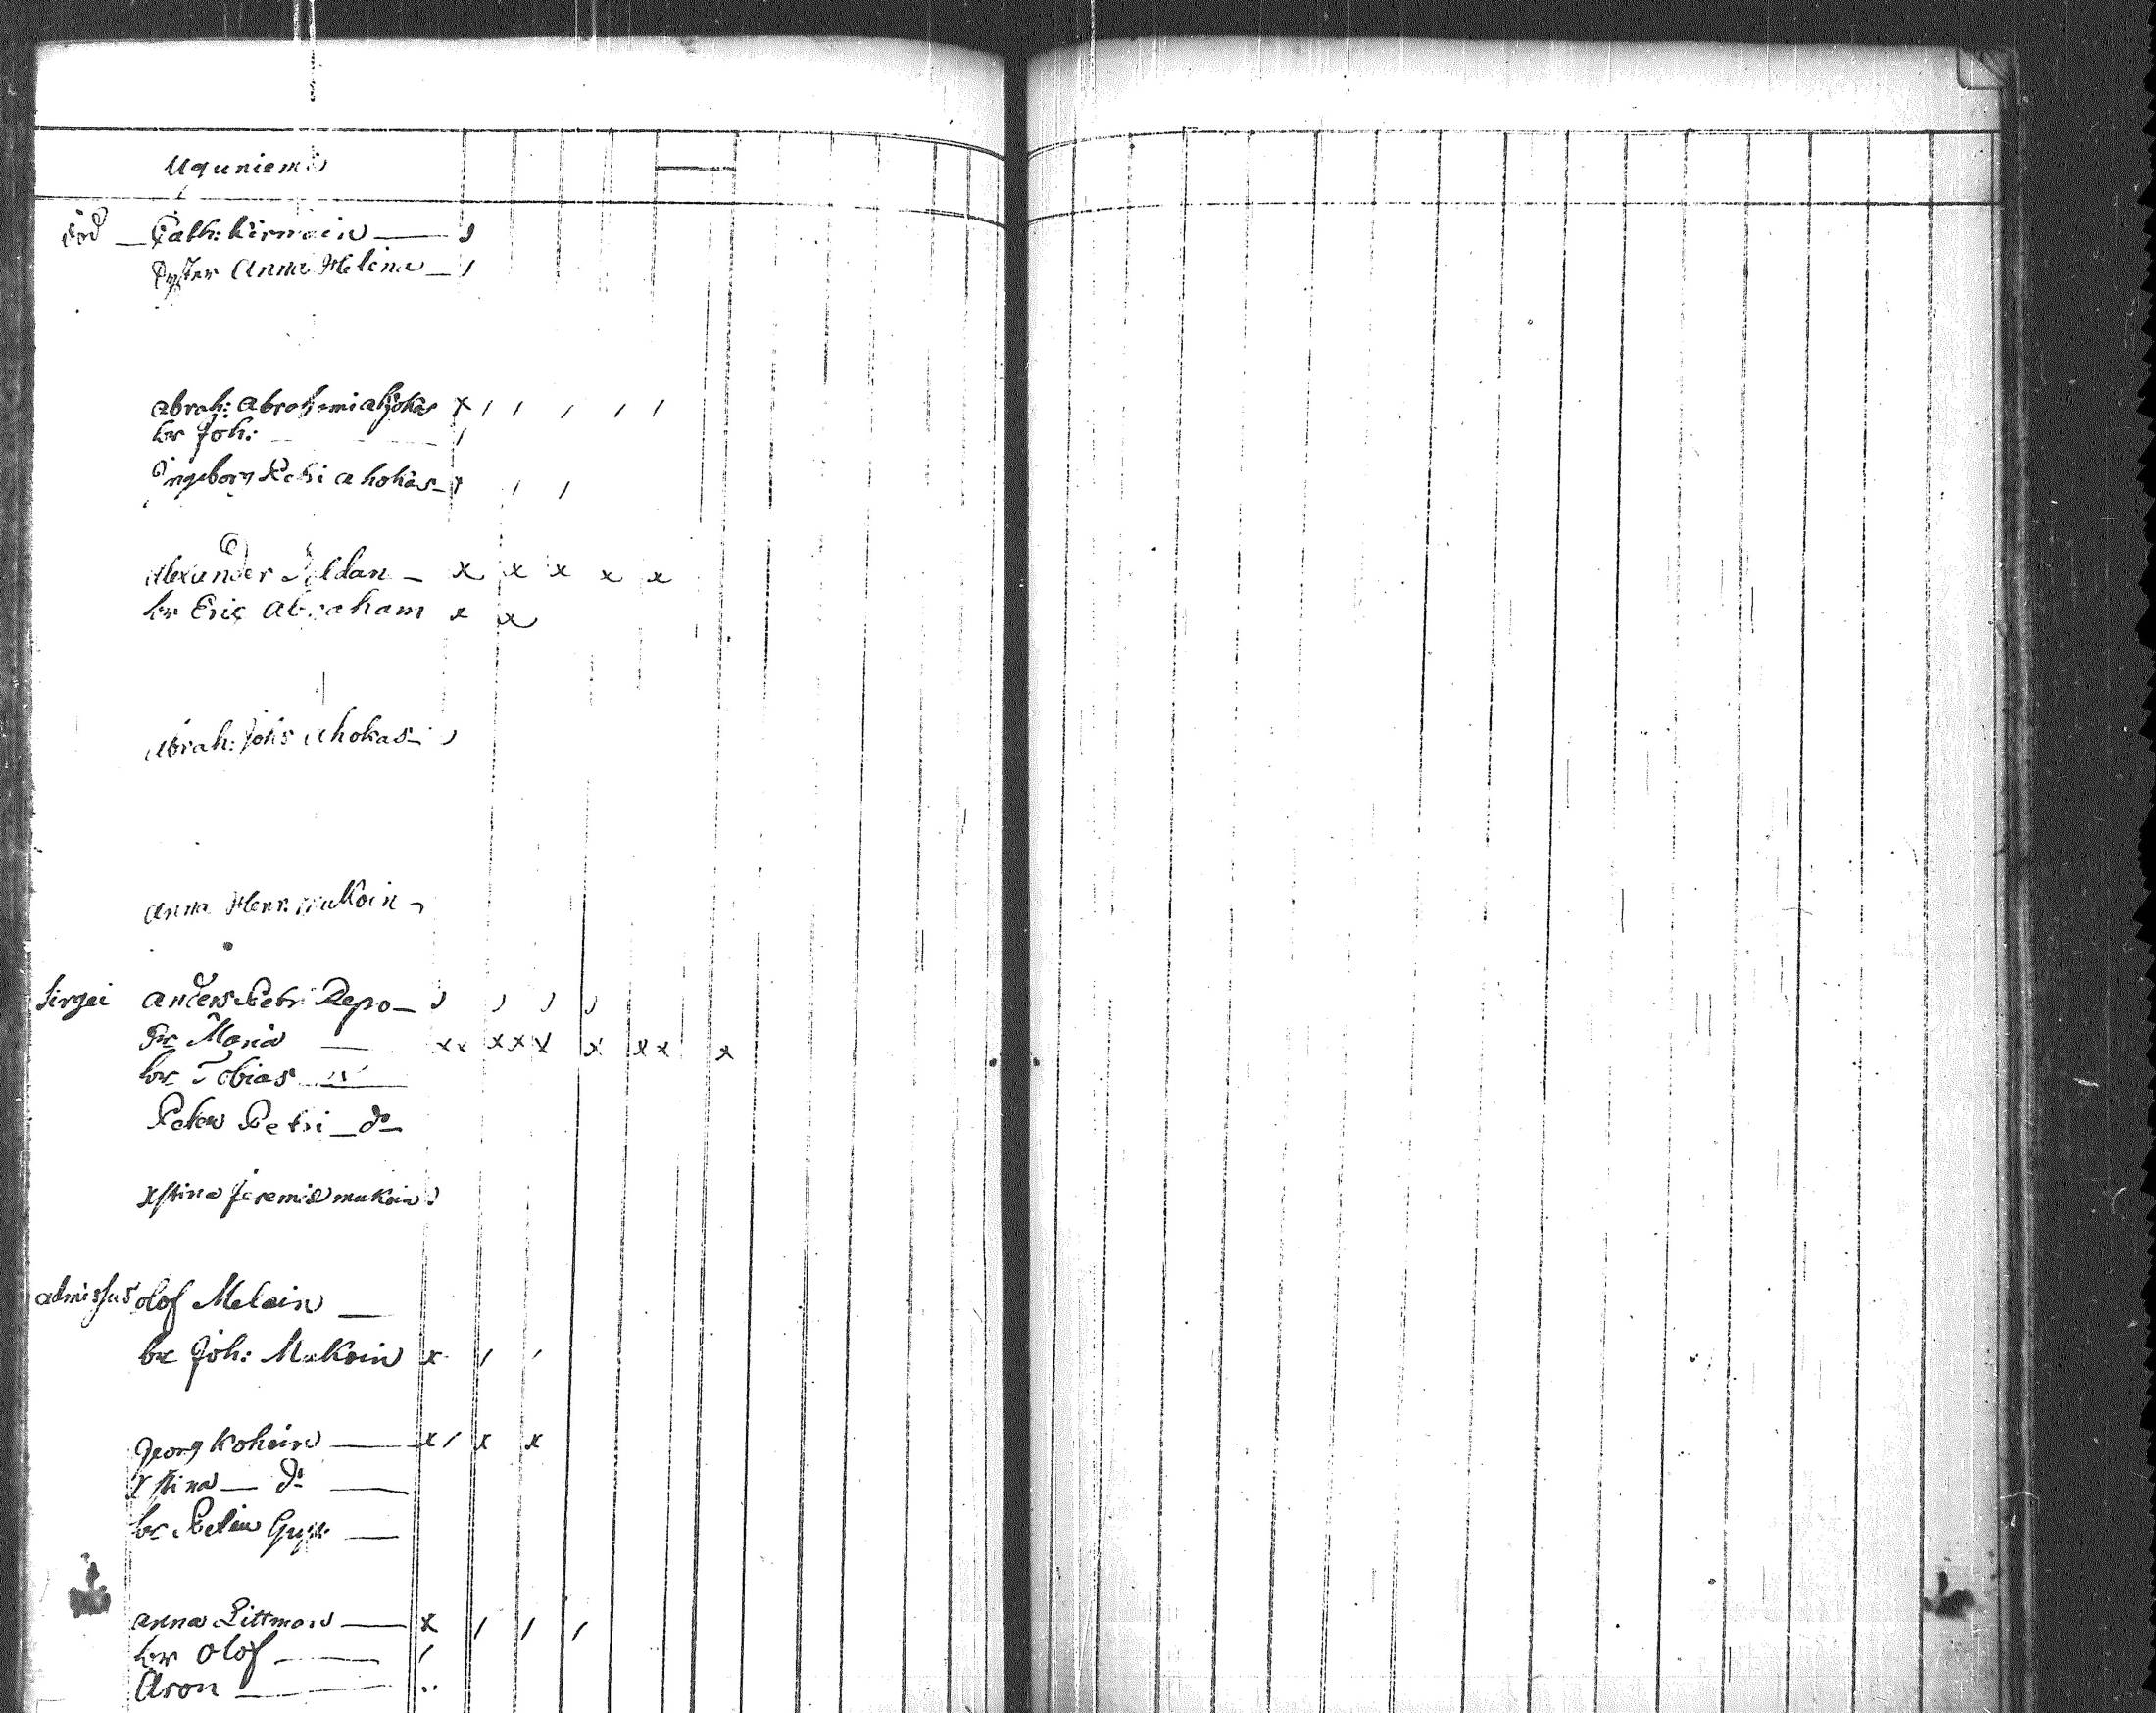 Uguniemi
död Cath: Kirmain
Syster Anna Helena
Abrah: Abrahami Ahokas x , , , , ,
br Joh: ,
Ingeborg Petri Ahokas , , ,
Alexander Seldan x x x x x
br Eric Abraham x x
Abrah: Joh's Ahokas ,
Anna Henr: Mukoin
Sirgei Anders Petri Repo , , , ,
Sr Maria x x x x x x x x x
br Tobias
Peter Petri do
Xstina Jeremiæ Mukoin ,
admissus Olof Melain
br Joh: Mukoin x , ,
Georg Kohoin x , x x
Xstina do
br Petri
Anna Littman x , , ,
br Olof ,
Aron